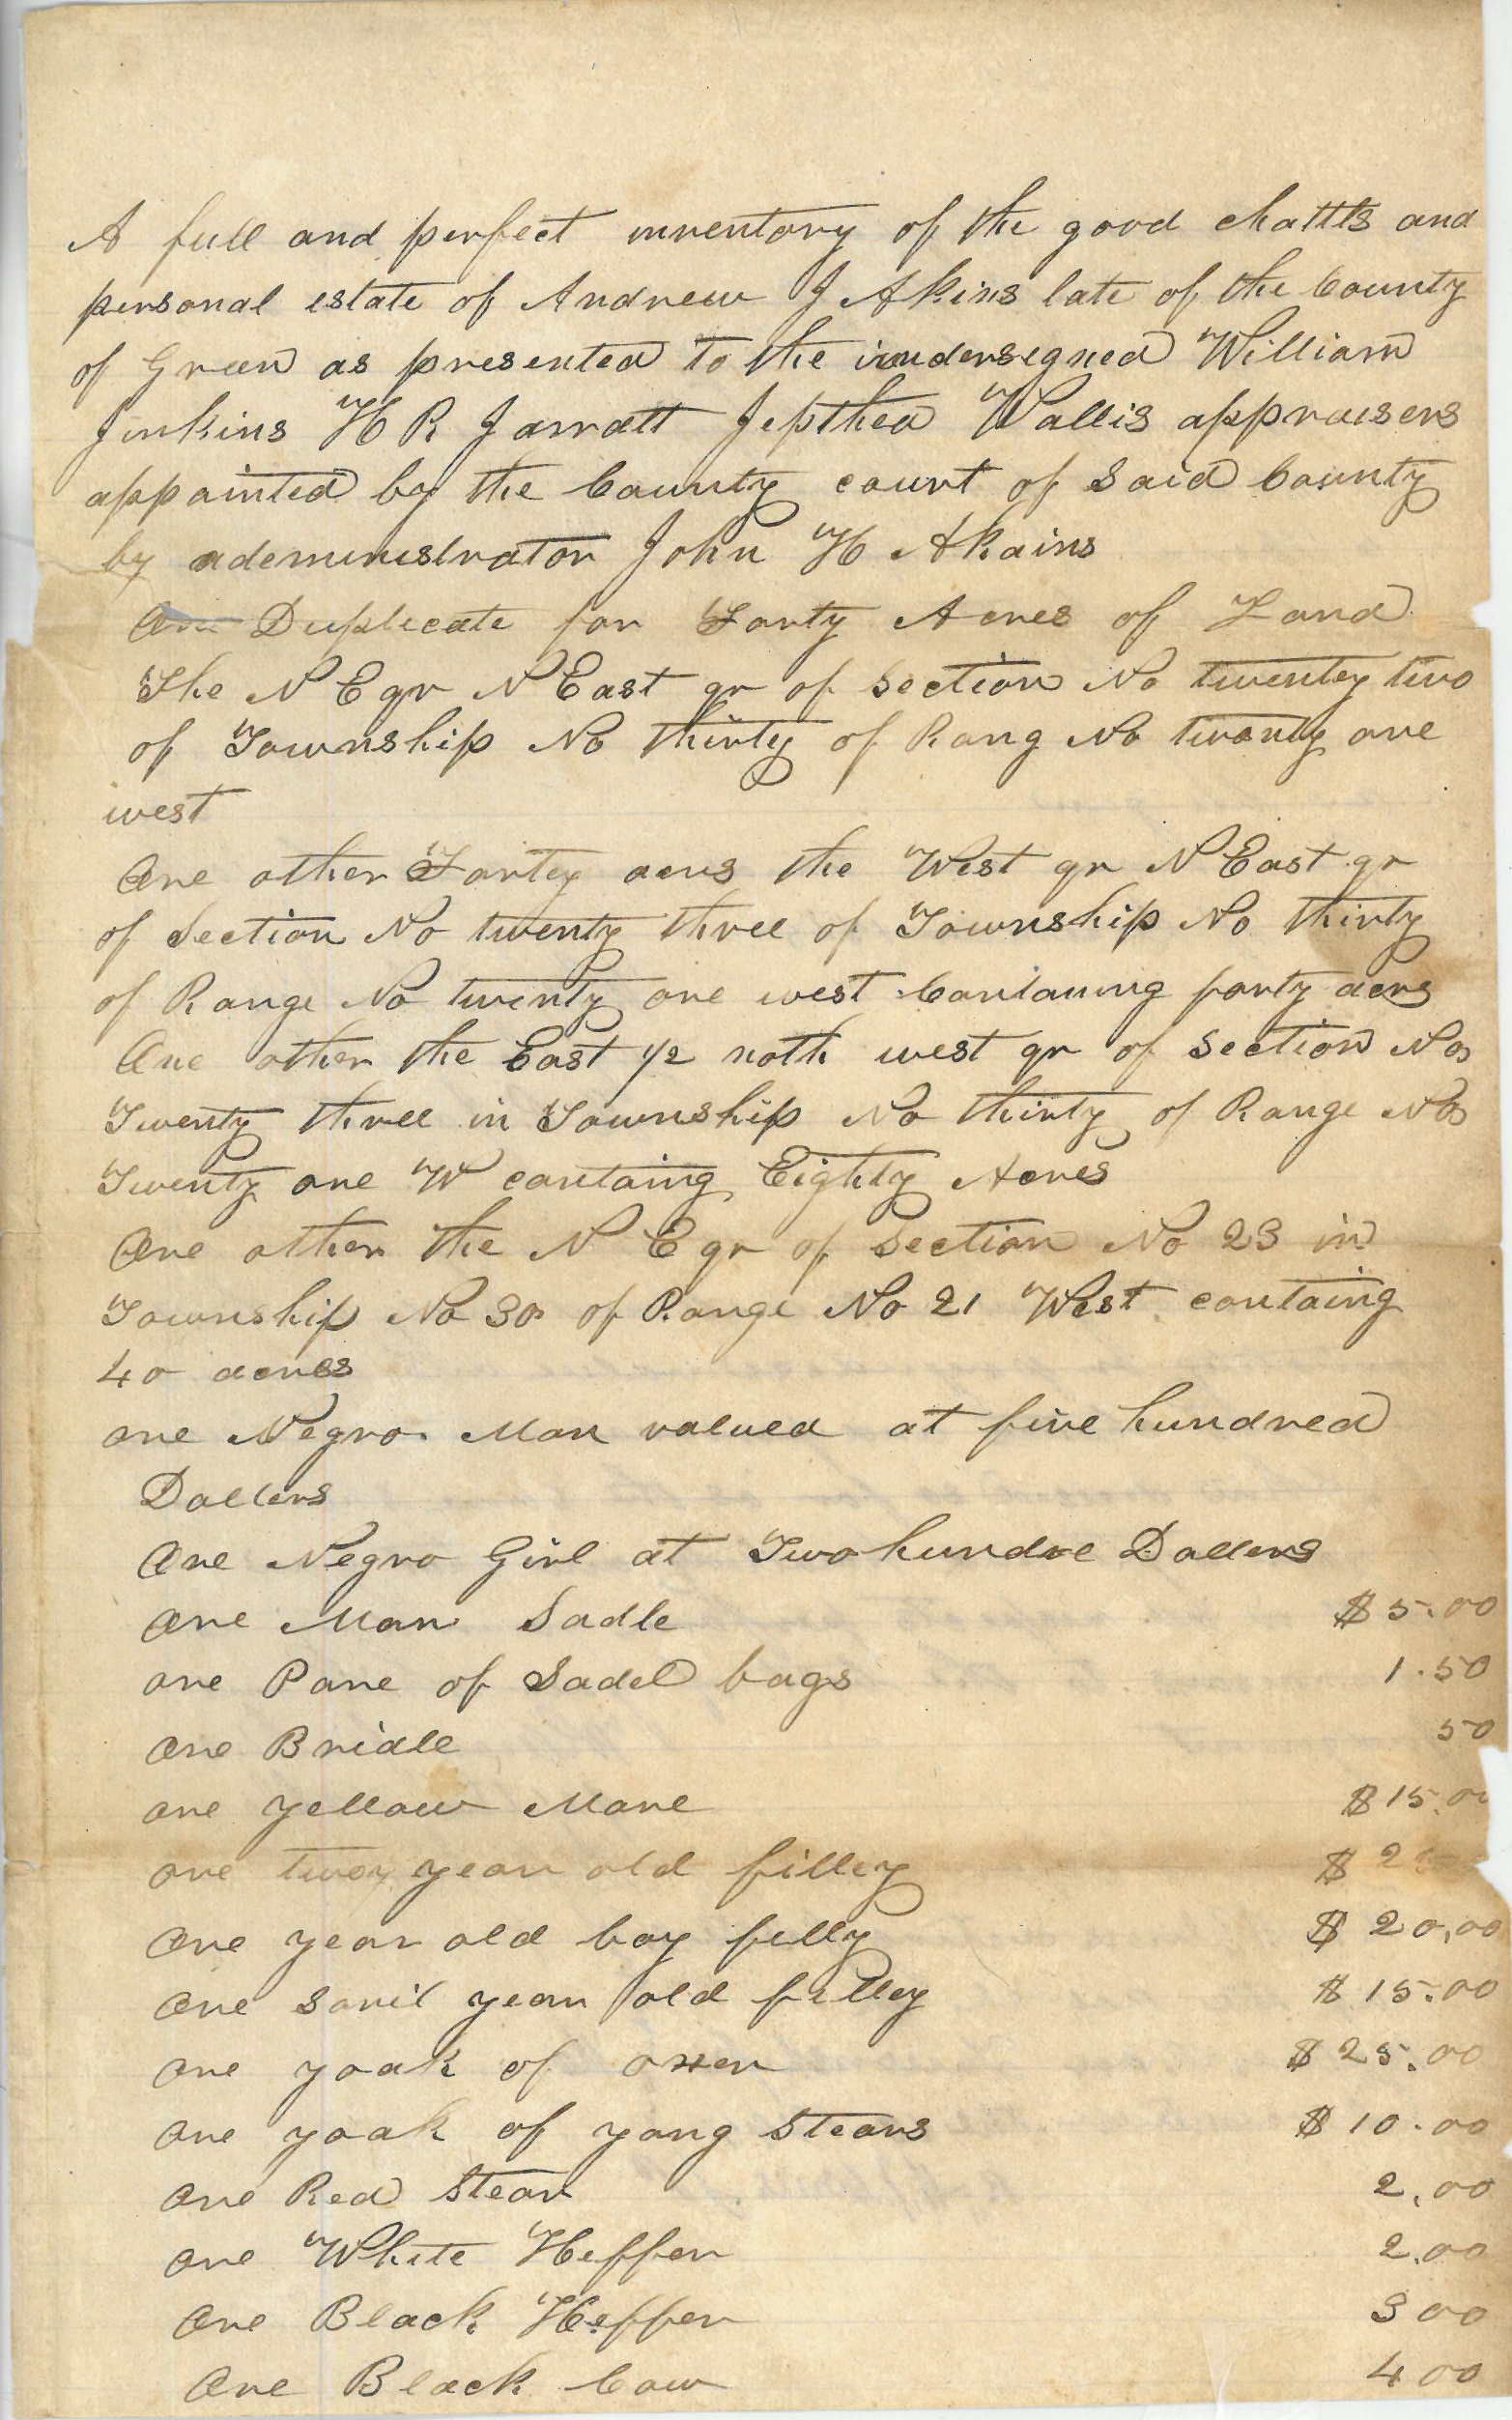 A full and perfect inventory of the good chattls and
personal estate of Andrew J Akins late of the County
of Green as presented to the undersegned William
Jinkins H R Jarratt Jepthea Wallis appraisers
appainted by the County court of Said County
by ademinustrator John H Akains
One Duplicate for Forty Acres of Land
The N E qr N East qr of Section No twentey two
of Township No thirty of Rang No twenty one
west
One other Fortey acrs the West qr N East qr
of Section No twenty three of Township No thirty
of Range No twenty one west Contaning forty acrs
One other the East 1/2 noth west qr of Section No
Twenty three in Township No thirty of Range No
Twenty one W containg Eighty Acres
One other the N E qr of Section No 23 in
Township No 30 of Range No 21 West containg
40 acres
one Negro Man valued at five hundred
Dollers
One Negro Girl at Two hundre Dollers
One Man Sadle $ 5.00
one Pare of Sadel bags 1.50
One Bridle 50
one yellow Mare $ 15.00
one two year old filley $ 2
One year old bay filly $ 20.00
One Soril year old filley $ 15.00
One yoak of oxen $ 25.00
One yoak of yong Stears $ 10.00
One Red Stear 2.00
One White Heffer 2.00
One Black Heffer 3 00
One Black Cow 4 00